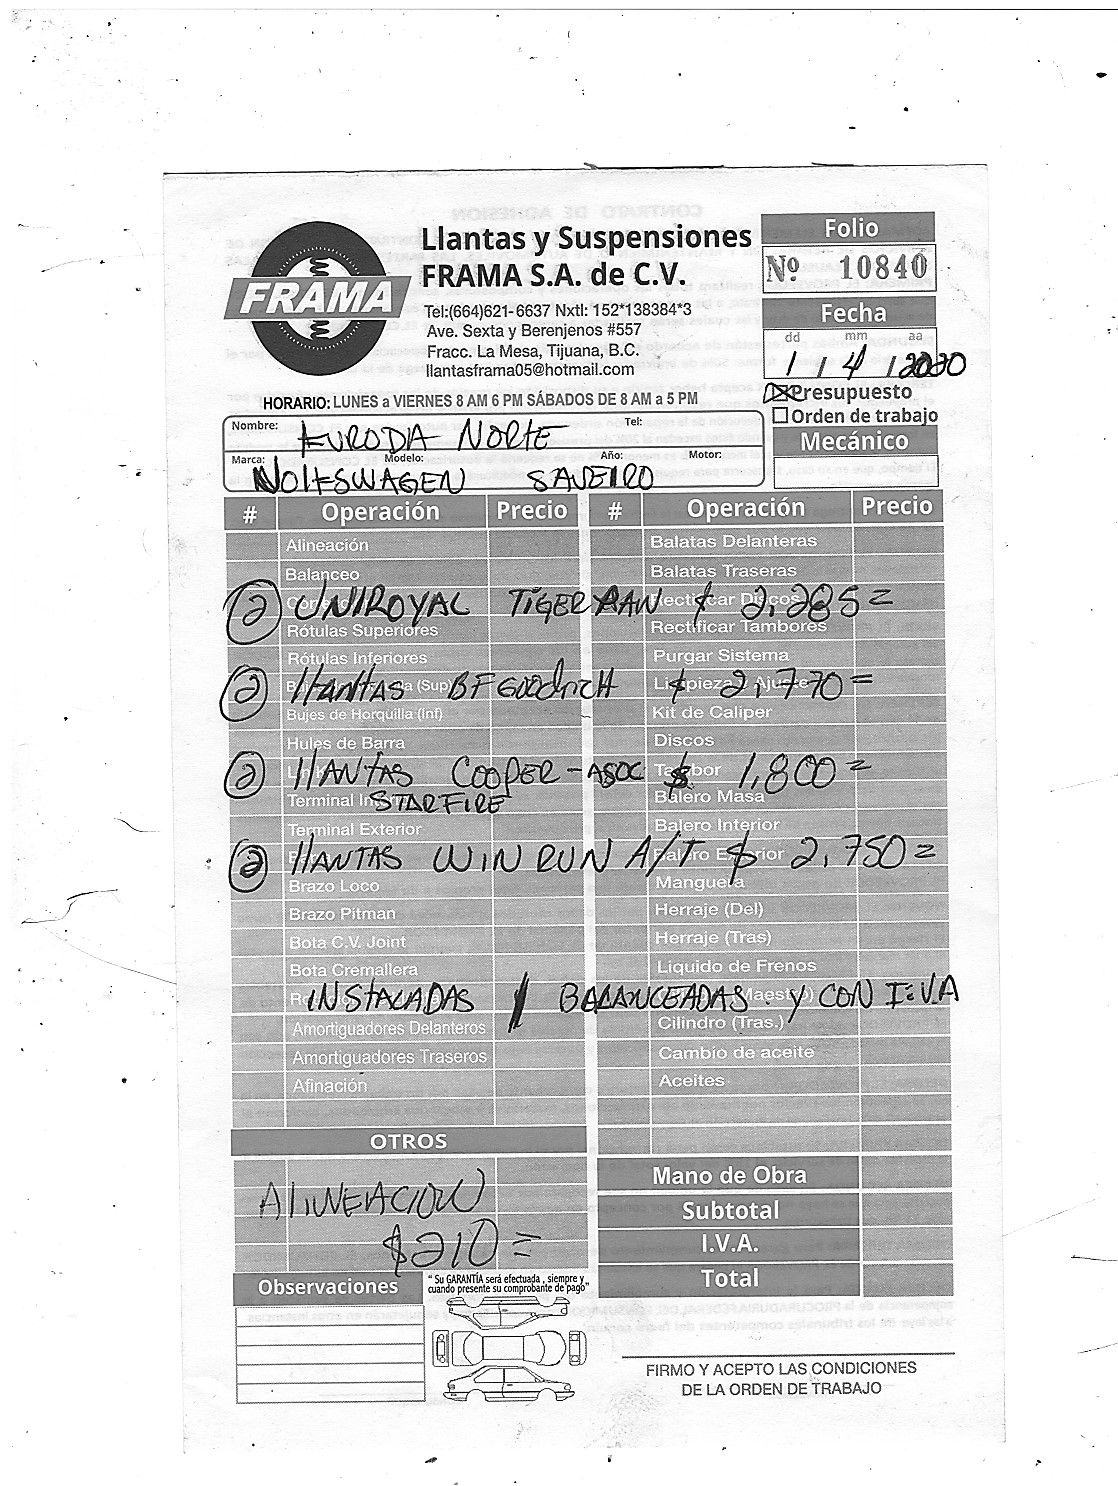 FRAMA
Llantas y Suspensiones
FRAMA S.A. de C.V.
Tel:(664)621-6637 Nxtl: 152*138384*3
Ave. Sexta y Berenjenos #557
Fracc. La Mesa, Tijuana, B.C.
llantasframa05@hotmail.com
Folio
Nº 10840
Fecha
dd mm aa
1 / 4 / 2020
Presupuesto
Orden de trabajo
HORARIO: LUNES a VIERNES 8 AM 6 PM SÁBADOS DE 8 AM a 5 PM
Nombre: EURODIA NORTE Tel:
Marca: Modelo: Año: Motor:
VOLKSWAGEN SAVEIRO
Mecánico
# Operación Precio # Operación Precio
Alineación Balatas Delanteras
Balanceo Balatas Traseras
2 UNIROYAL TIGER PAW $ 2,285=
Rectificar Discos
Rótulas Superiores Rectificar Tambores
Rótulas Inferiores Purgar Sistema
2 llantas BFGoodricH $ 2,770=
(Sup) Limpieza y Ajuste
Bujes de Horquilla (Inf) Kit de Caliper
Hules de Barra Discos
2 llANTAS COOPER-ASOC $ 1,800=
Tambor
STARFIRE
Terminal Balero Masa
Terminal Exterior Balero Interior
2 llANTAS WINRUN A/T $ 2,750=
Balero Exterior
Brazo Loco Manguera
Brazo Pitman Herraje (Del)
Bota C.V. Joint Herraje (Tras)
Bota Cremallera Liquido de Frenos
INSTALADAS / BALANCEADAS y CON I.V.A
Maestro)
Amortiguadores Delanteros Cilindro (Tras.)
Amortiguadores Traseros Cambio de aceite
Afinación Aceites
OTROS
AlINEACION
$210=
Mano de Obra
Subtotal
I.V.A.
Total
Observaciones
" Su GARANTÍA será efectuada , siempre y
cuando presente su comprobante de pago"
FIRMO Y ACEPTO LAS CONDICIONES
DE LA ORDEN DE TRABAJO